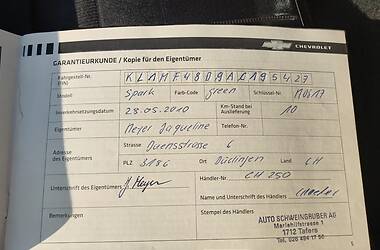 CHEVROLET
GARANTIEURKUNDE / Kopie für den Eigentümer
Fahrgestell-Nr. (VIN) KL1MF4809AC195423
Modell Spark Farb-Code green Schlüssel-Nr. M0517
Inverkehrsetzungsdatum 28.05.2010 Km-Stand bei Auslieferung 10
Eigentümer Meyer Jaqueline Telefon-Nr.
Adresse des Eigentümers Strasse Duensstrasse 6
PLZ 3186 Ort Düdingen Land CH
Händler-Nr. CH 250
Unterschrift des Eigentümers J. Meyer Name und Unterschrift des Händlers
Bemerkungen Stempel des Händlers
AUTO SCHWEINGRUBER AG
Mariahilfstrasse 1
1712 Tafers
Tel. 026 494 17 50
5